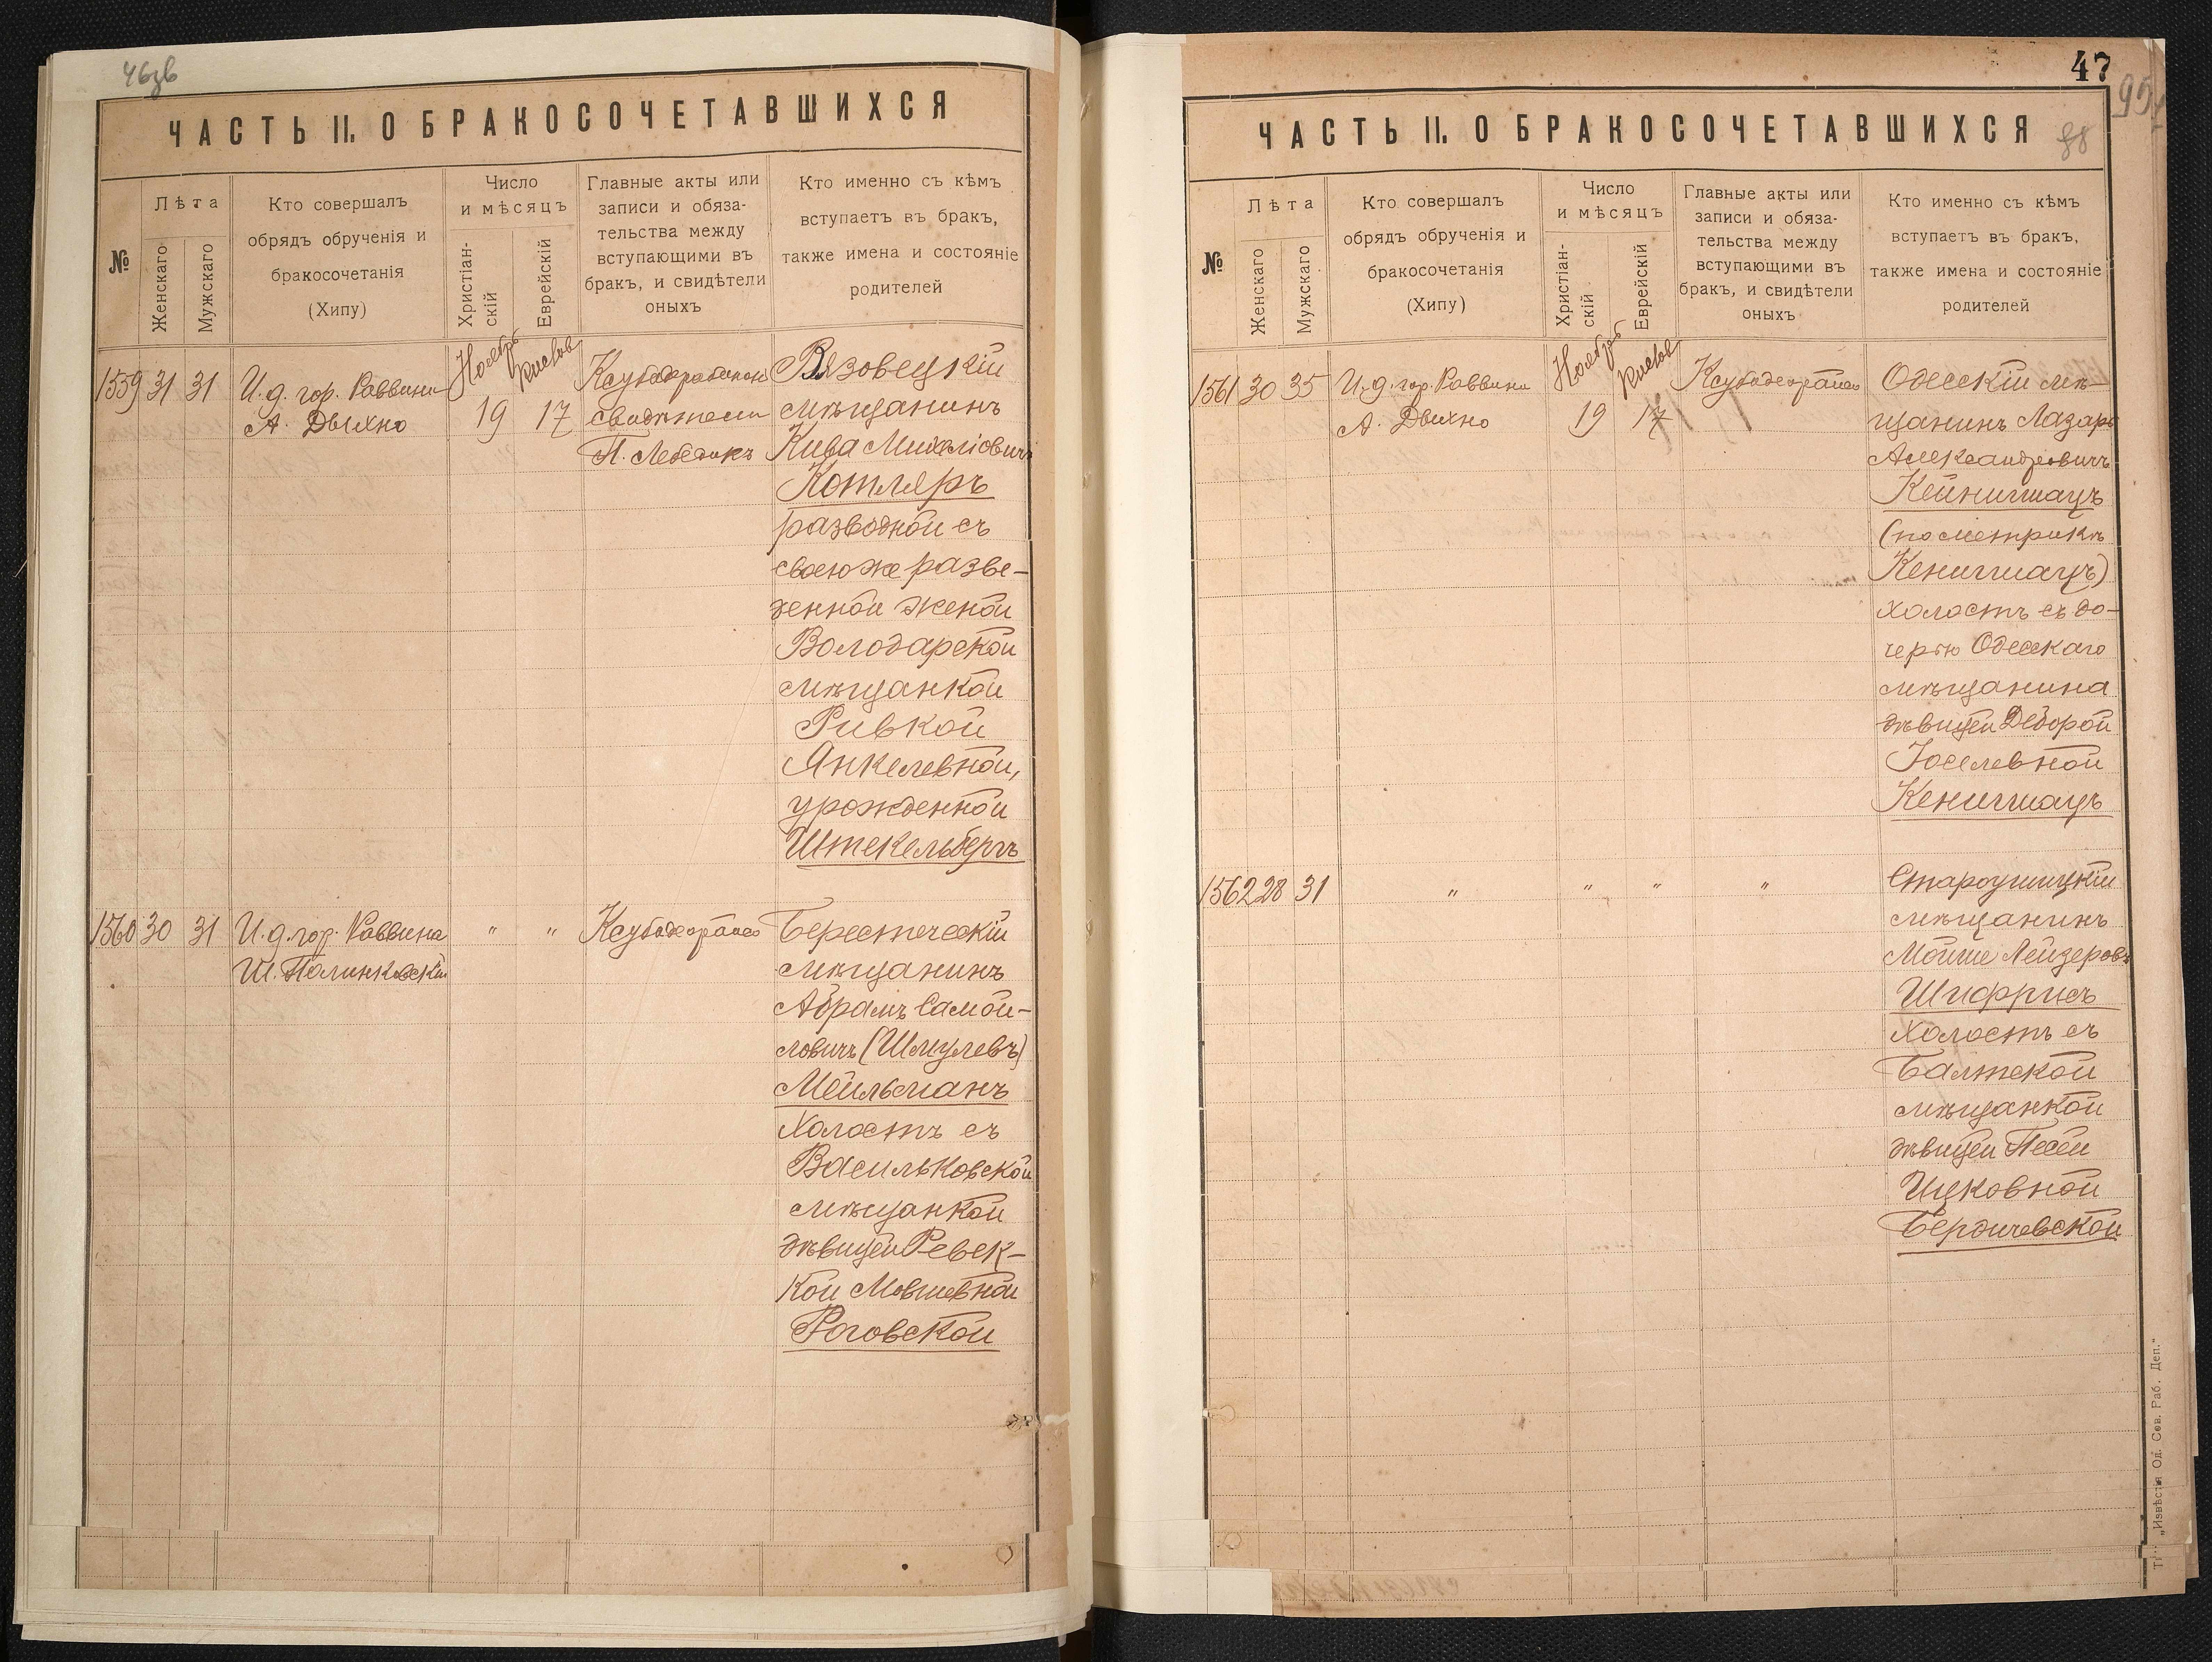 46зв
ЧАСТЬ II. О БРАКОСОЧЕТАВШИХСЯ
№
Лѣта
Женскаго
Мужскаго
Кто совершалъ
обрядъ обрученія и
бракосочетанія
(Хипу)
Число
и мѣсяцъ
Христіан-
скій
Еврейскій
Главные акты или
записи и обяза-
тельства между
вступающими въ
бракъ, и свидѣтели
оныхъ
Кто именно съ кѣмъ
вступаетъ въ бракъ,
также имена и состояніе
родителей
1559 31 31
И. д. гор. Раввина
А. Дыхно
Ноябрь
Кислов
19 17
свидѣтели
П. Лебедикъ
Вязовецкій
мѣщанинъ
Кива Михеліовичъ
Котляръ
разводной съ
своею же разве-
денной женой
Володарской
мѣщанкой
Ривкой
Янкелевной,
урожденной
Штекельбергъ
1560 30 31
И. д. гор. Раввина
Ш. Полинковскій
" "
Ксубодеорайсо
Берестечскій
мѣщанинъ
Абрамъ Самой-
ловичъ (Шмулевъ)
Мейльманъ
холостъ съ
Васильковской
мѣщанкой
дѣвицей Ревек-
кой Мовшевной
Роговской
47
95
88
ЧАСТЬ II. О БРАКОСОЧЕТАВШИХСЯ
№
Лѣта
Женскаго
Мужскаго
Кто совершалъ
обрядъ обрученія и
бракосочетанія
(Хипу)
Число
и мѣсяцъ
Христіан-
скій
Еврейскій
Главные акты или
записи и обяза-
тельства между
вступающими въ
бракъ, и свидѣтели
оныхъ
Кто именно съ кѣмъ
вступаетъ въ бракъ,
также имена и состояніе
родителей
1561 30 35
И. д. гор. Раввина
А. Дыхно
Ноябрь
Кислов
19 17
Ксубодеорайсо
Одесскій мѣ-
щанинъ Лазарь
Александровичъ
Кейнигшацъ
(по метрикѣ
Кенигшацъ)
холостъ съ до-
черью Одесскаго
мѣщанина
дѣвицей Деборой
Іоселевной
Кенигшацъ
1562 28 31
" " " "
Староушицкій
мѣщанинъ
Мойше Лейзеровъ
Шифрисъ
холостъ съ
Балтской
мѣщанкой
дѣвицей Песей
Ицковной
Бердичевской
Тг. „Извѣстія Од. Сов. Раб. Деп."